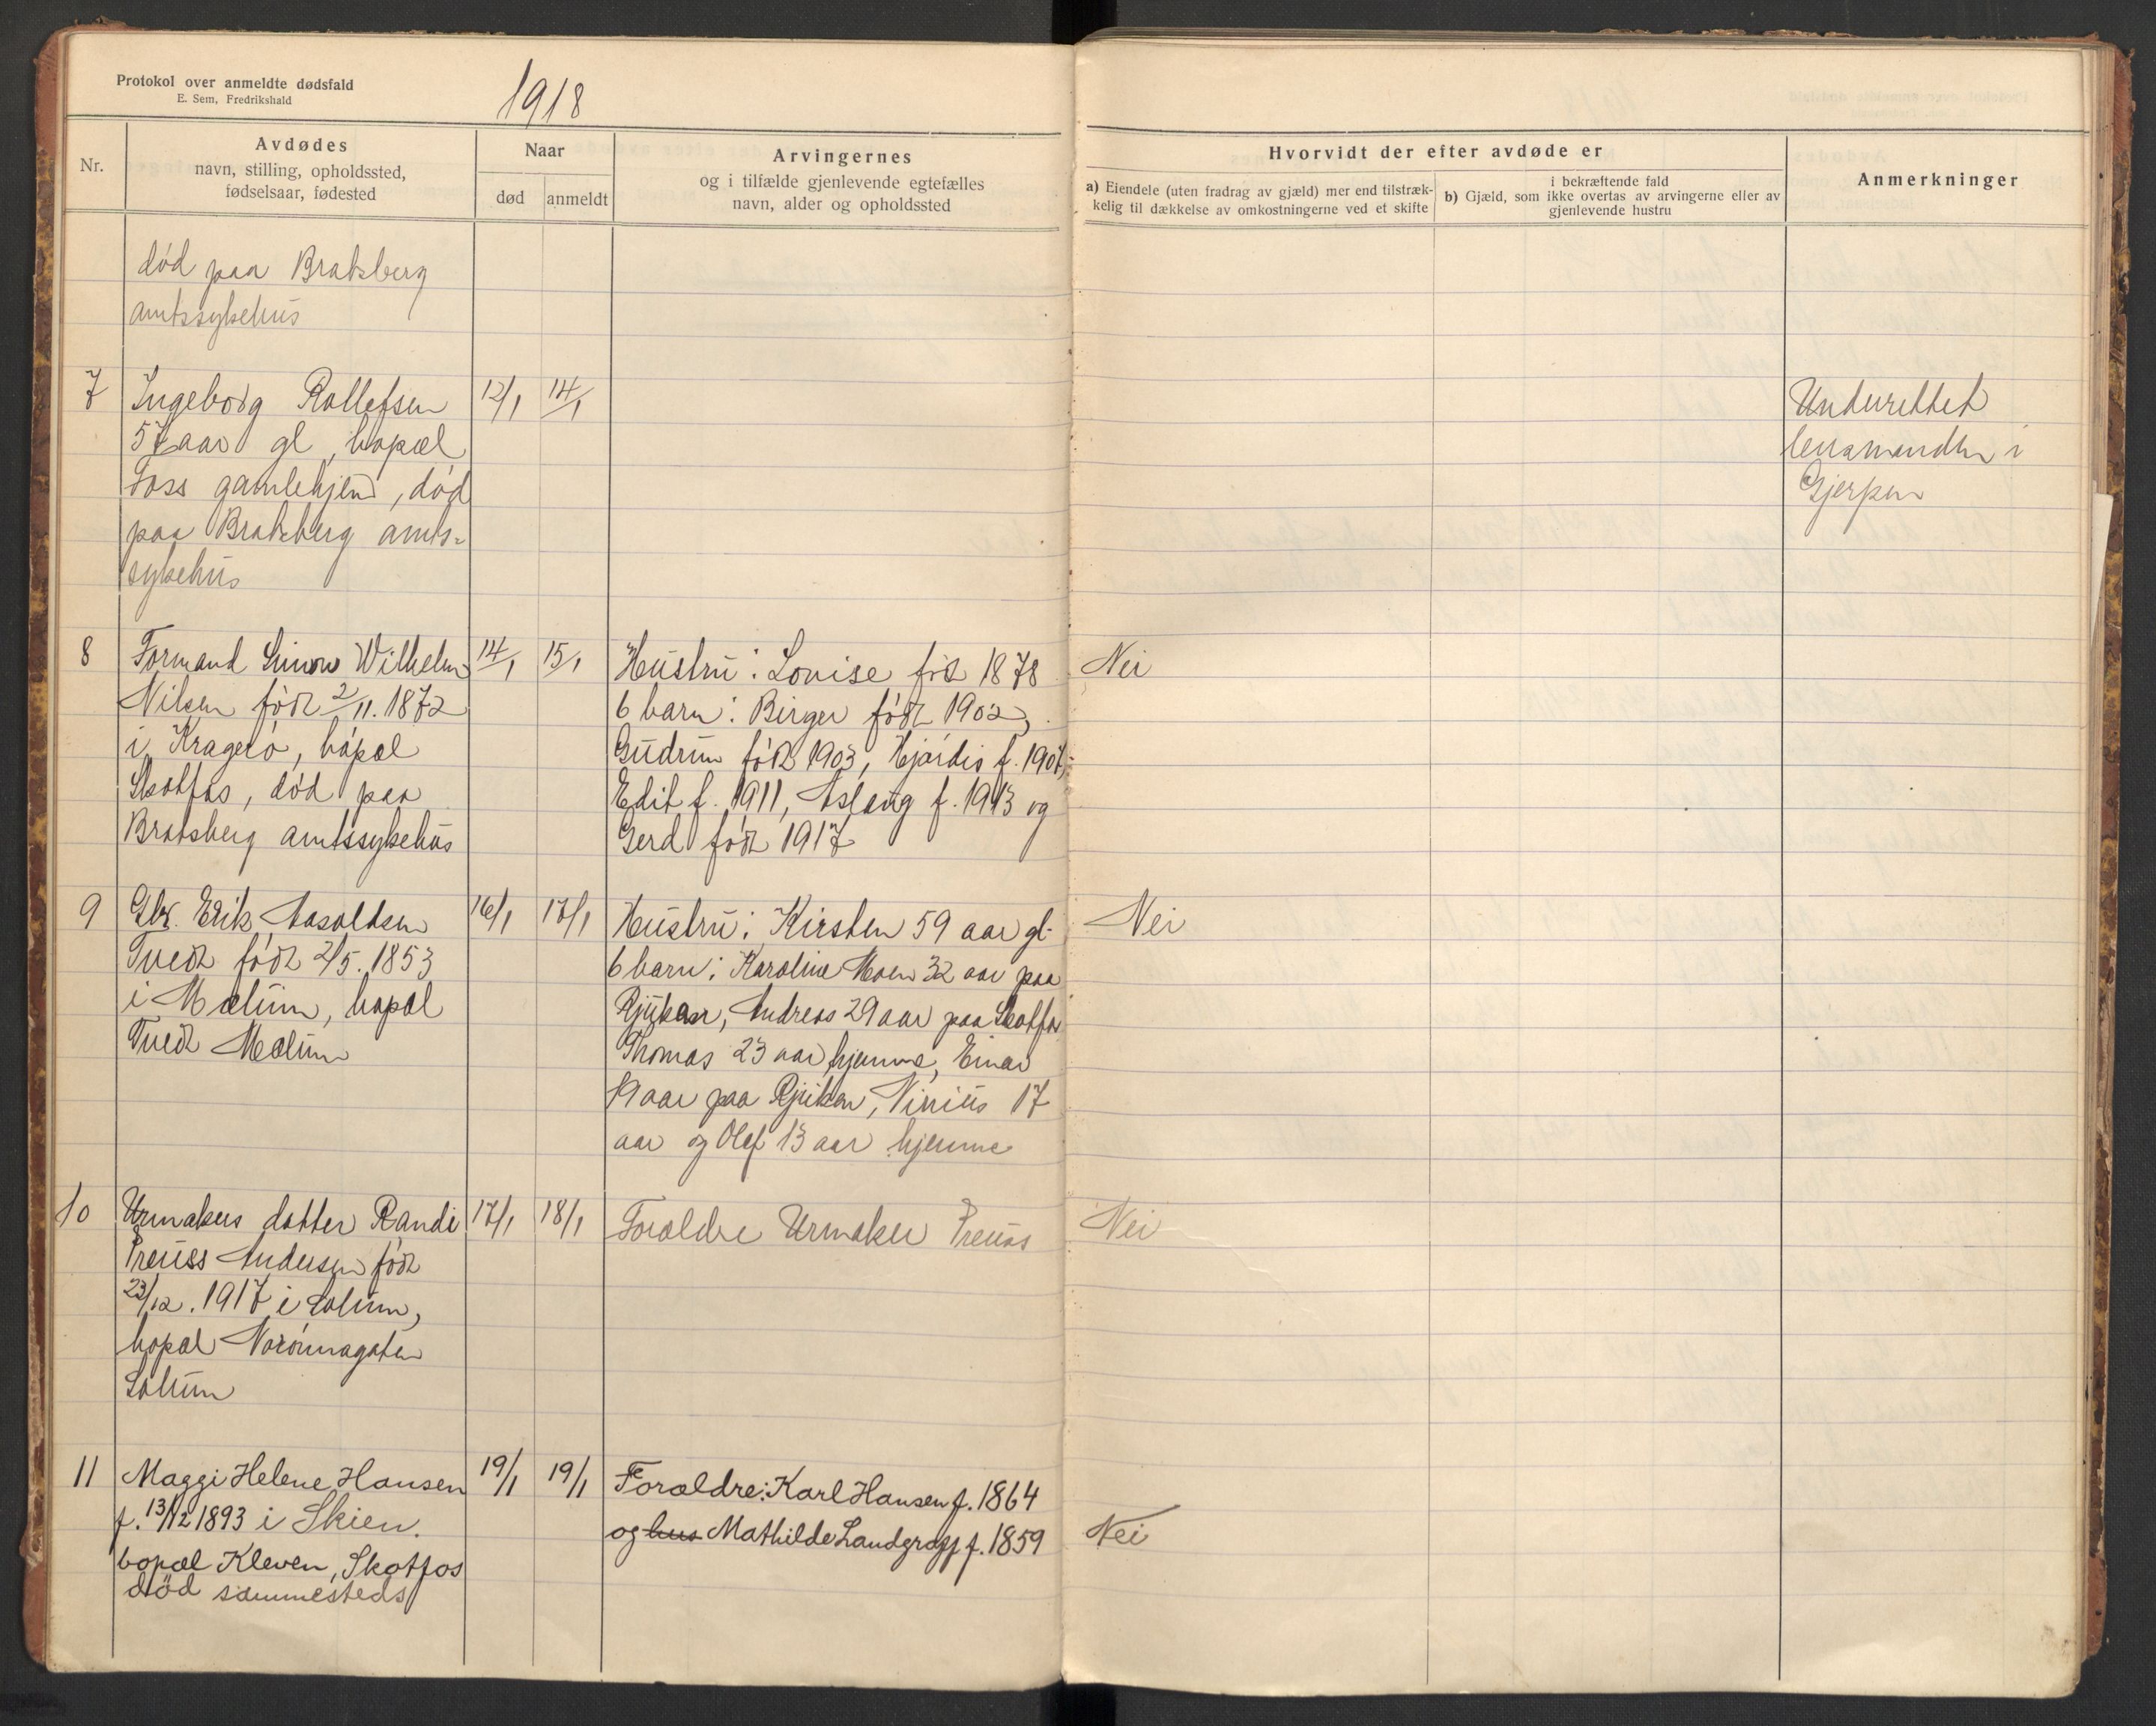 Protokol over anmeldte dødsfald
E. Sem, Fredrikshald
1918
Nr.
Avdødes
navn, stilling, opholdssted,
fødselsaar, fødested
Naar
død
anmeldt
Arvingernes
og i tilfælde gjenlevende egtefælles
navn, alder og opholdssted
Hvorvidt der efter avdøde er
a) Eiendele (uten fradrag av gjæld) mer end tilstræk-
kelig til dækkelse av omkostningerne ved et skifte
i bekræftende fald
b) Gjæld, som ikke overtas av arvingerne eller av
gjenlevende hustru
Anmerkninger
død paa Bratsberg
amtssykehus
7
Ingeborg Rollefsen
57 aar gl, bopæl
Foss gamlehjem, død
paa Bratsberg amts-
sykehus
12/1
14/1
Underrettet
lensmanden i
Gjerpen
8
Formand Simon Wilhelm
Nilsen født 2/11. 1872
i Kragerø, bopæl
Skotfos, død paa
Bratsberg amtssykehus
14/1
15/1
Hustru: Louise født 1878
6 barn: Birger født 1902,
Gudrun født 1903, Hjørdis f. 1907,
Edit f. 1911, Aslaug f. 1913 og
Gerd født 1917
Nei
9
Gbr. Erik Aasoldsen
Tvedt født 2/5. 1853
i Mælum, bopæl
Tvedt Mælum
16/1
17/1
Hustru: Kirsten 59 aar gl.
6 barn: Karoline Moen 32 aar paa
Rjukan, Andreas 29 aar paa Skotfos
Thomas 23 aar hjemme, Einar
19 aar paa Rjukan, Ninius 17
aar og Olaf 13 aar hjemme
Nei
10
Urmakers datter Randi
Preuss Andersen født
23/12. 1917 i Solum,
bopæl Norønnagaten
Solum
17/1
18/1
Forældre Urmaker Preuss
Nei
11
Maggi Helene Hansen
f. 13/12 1893 i Skien.
bopæl Kleven, Skotfos
död sammesteds
19/1
19/1
Forældre: Karl Hansen f. 1864
og hus Mathilde Landgraff f. 1859
Nei